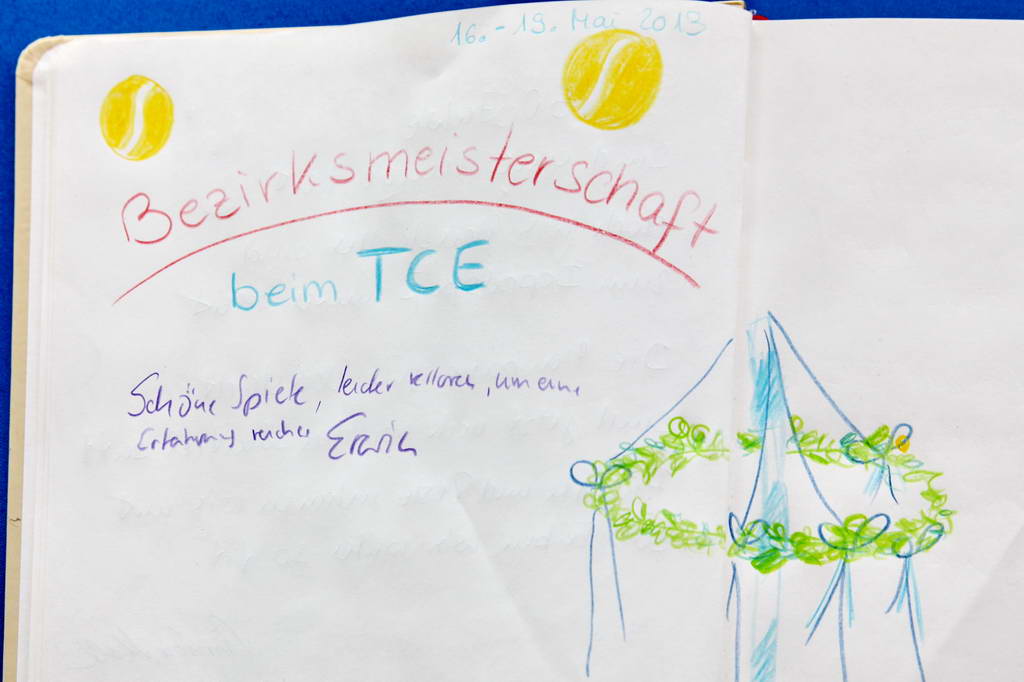 16. - 19. Mai 2013
Bezirksmeisterschaft
beim TCE
Schöne Spiele, leider verloren, um eine
Erfahrung reicher Erwin